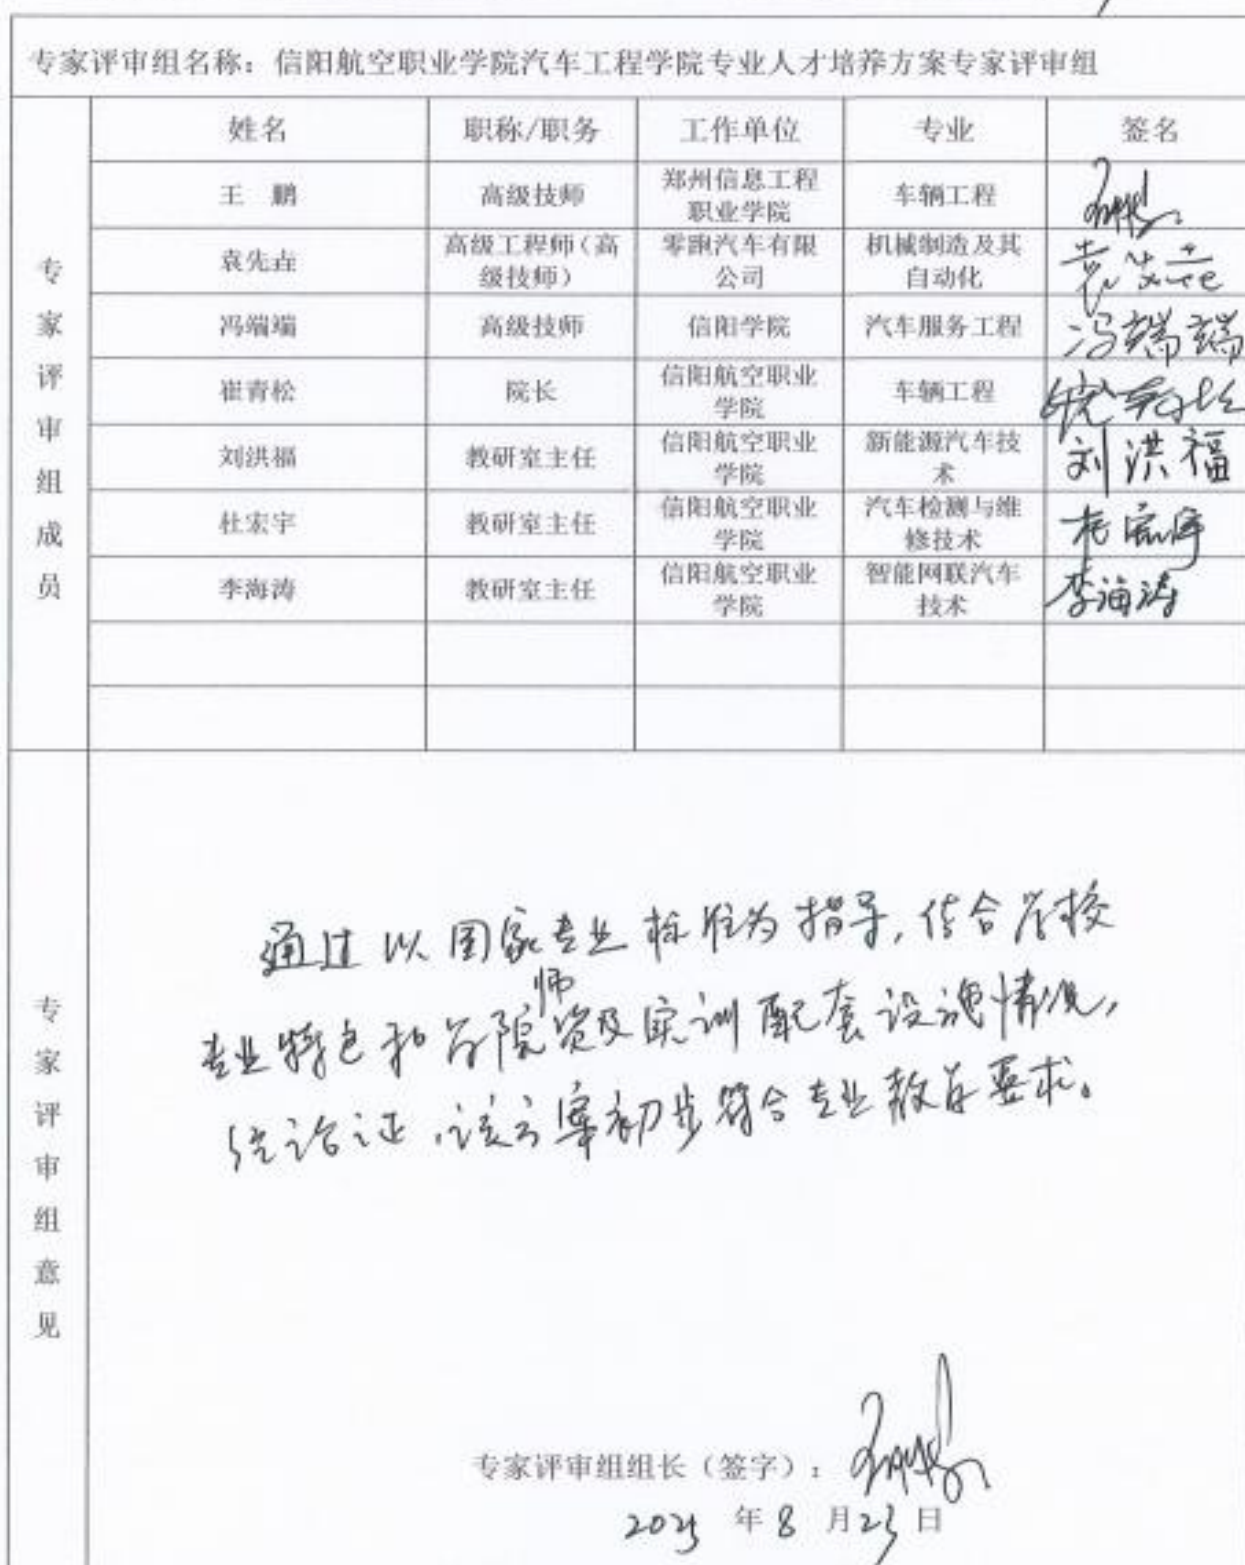 专家评审组名称：信阳航空职业学院汽车工程学院专业人才培养方案专家评审组
专家评审组成员
姓名 职称/职务 工作单位 专业 签名
王 鹏 高级技师 郑州信息工程职业学院 车辆工程
袁先垚 高级工程师（高级技师） 零跑汽车有限公司 机械制造及其自动化 袁先垚
冯端端 高级技师 信阳学院 汽车服务工程 冯端端
崔青松 院长 信阳航空职业学院 车辆工程
刘洪福 教研室主任 信阳航空职业学院 新能源汽车技术 刘洪福
杜宏宇 教研室主任 信阳航空职业学院 汽车检测与维修技术
李海涛 教研室主任 信阳航空职业学院 智能网联汽车技术 李海涛
专家评审组意见
通过以国家专业标准为指导，结合学校
专业特色和学院师资及实训配套设施情况，
经论证，该方案初步符合专业教育要求。
专家评审组组长（签字）：
2025 年 8 月 23 日